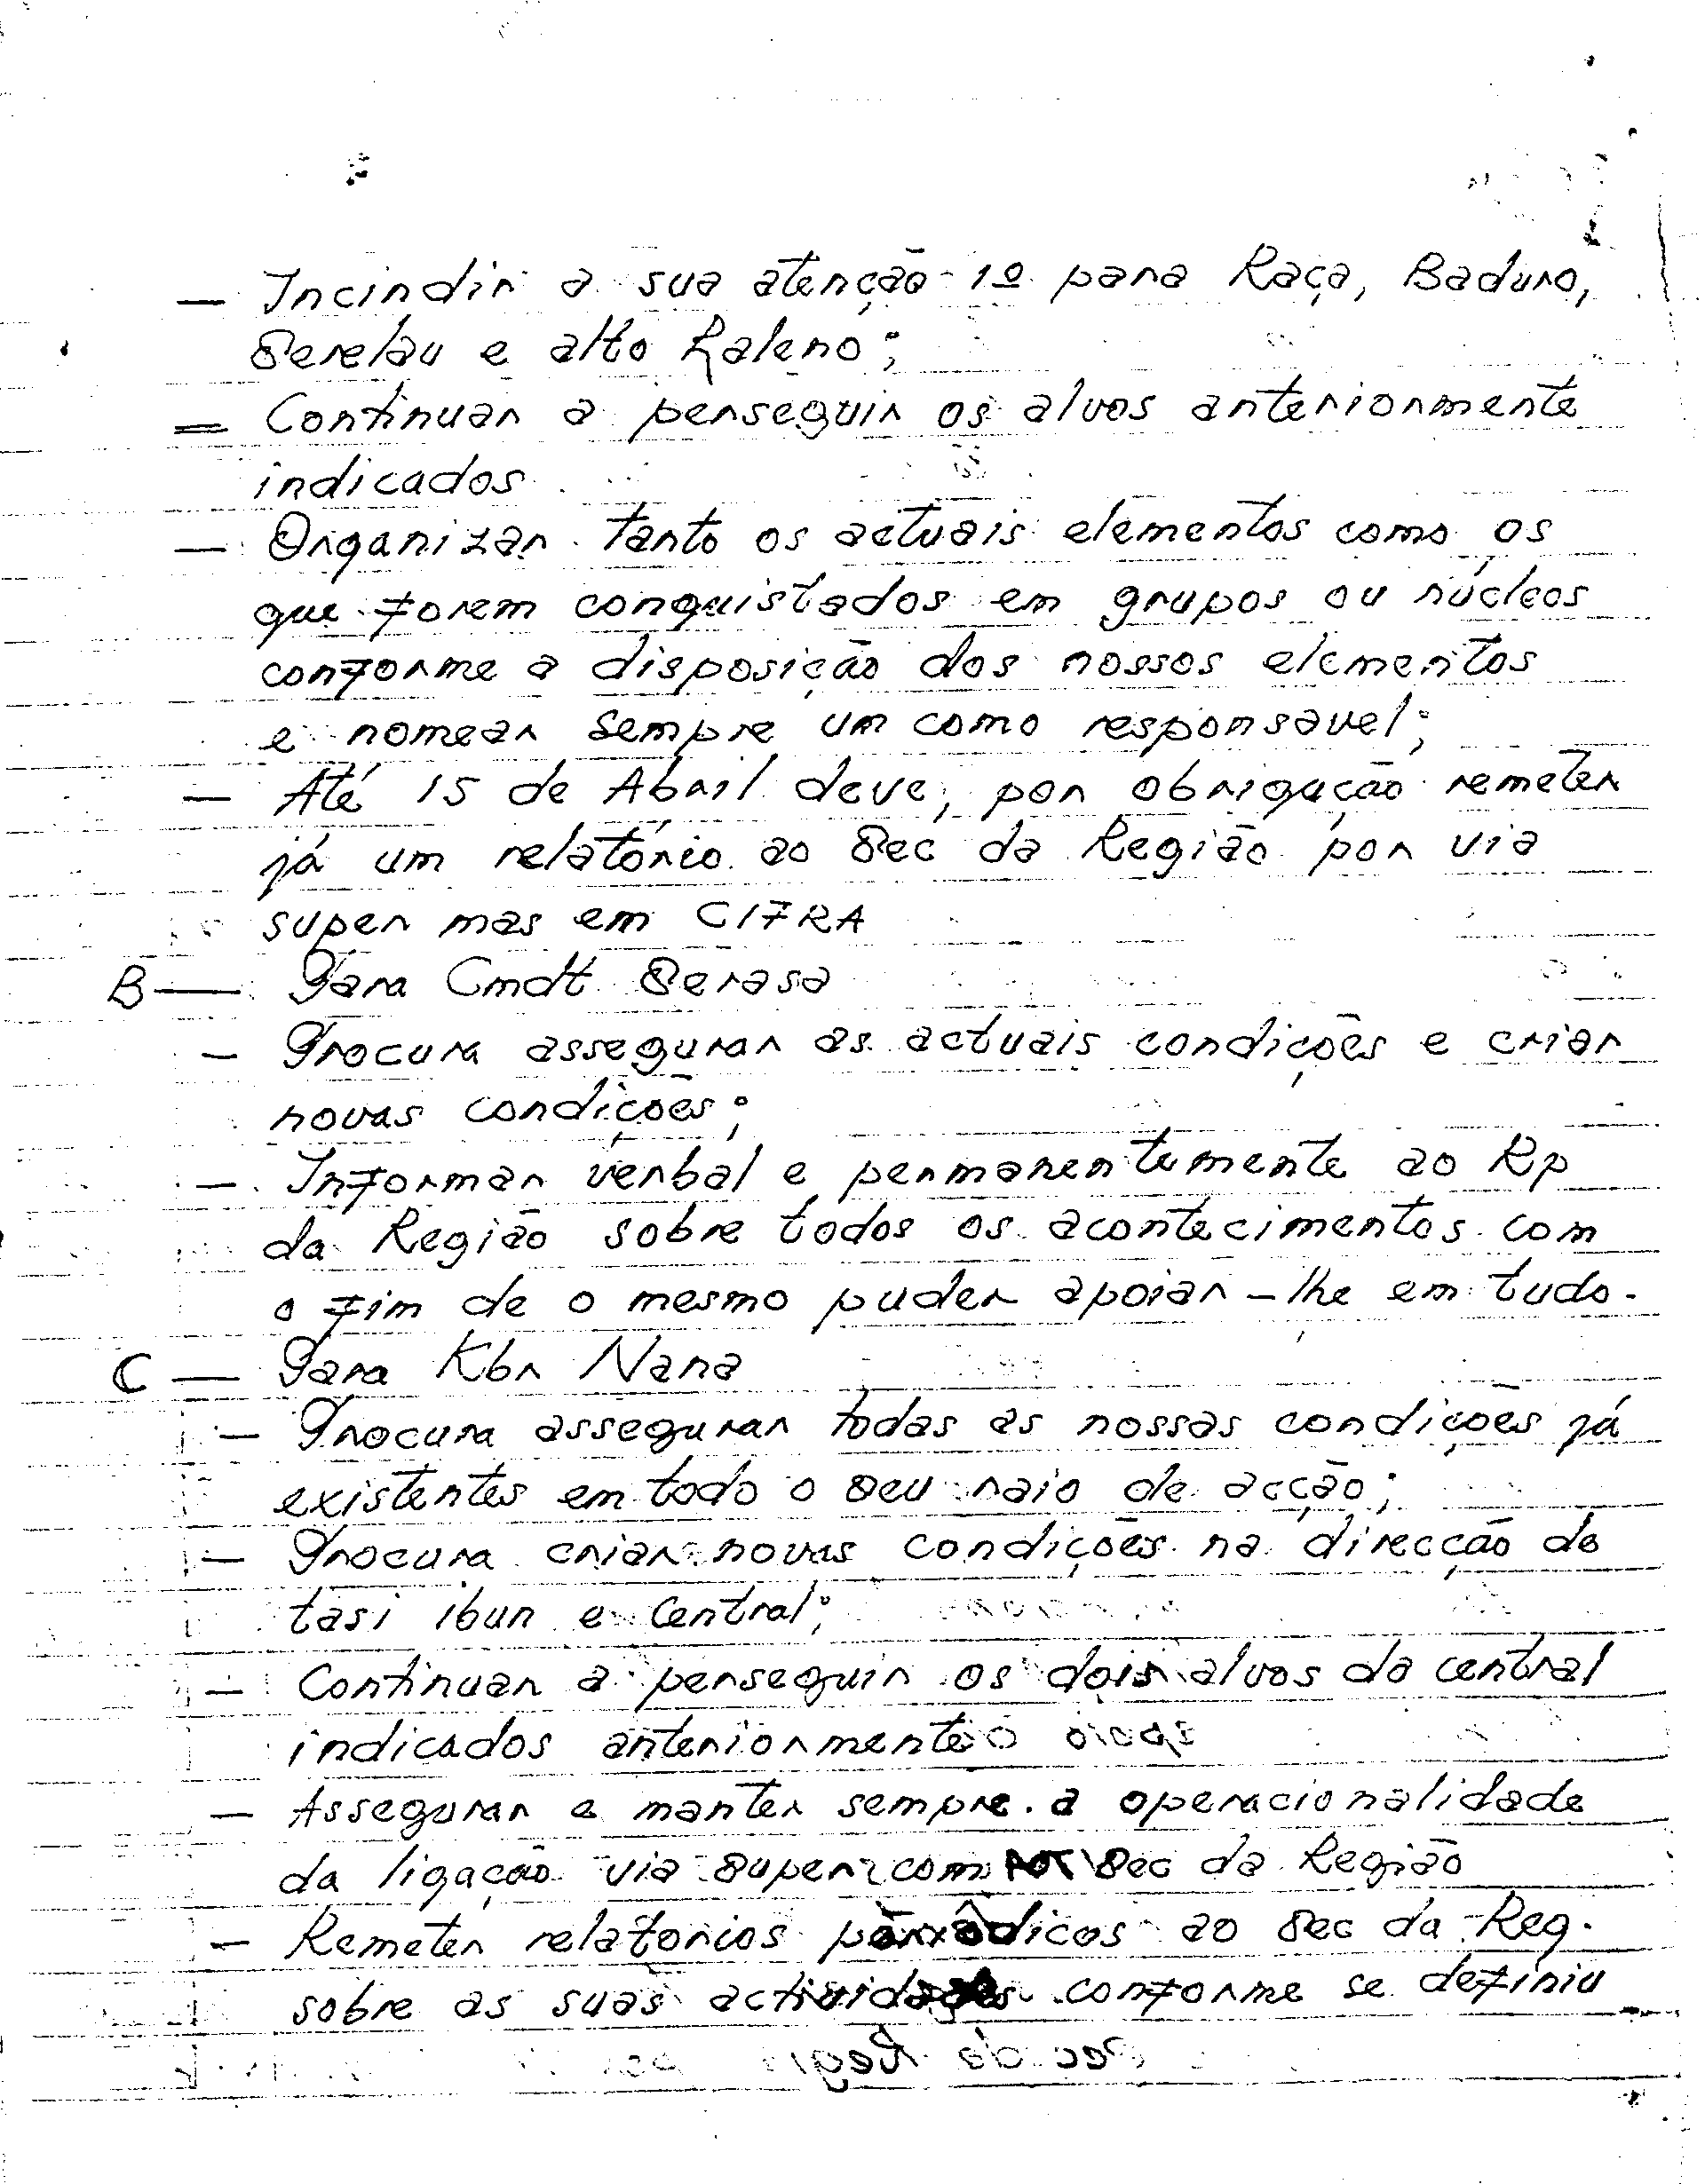 — Incindir a sua atenção 1º para Raça, Baduro,
Serelau e alto Raleno;
— Continuar a perseguir os alvos anteriormente
indicados
— Organizar tanto os actuais elementos como os
que forem conquistados em grupos ou núcleos
conforme a disposição dos nossos elementos
e nomear sempre um como responsavel;
— Até 15 de Abril deve, por obrigação remeter
já um relatório ao Sec da Região por via
super mas em CIFRA
B — Para Cmdt Serasa
— Procura assegurar as actuais condições e criar
novas condições;
— Informar verbal e permanentemente ao Rp
da Região sobre todos os acontecimentos com
o fim de o mesmo puder apoiar-lhe em tudo.
C — Para Kbr Nana
— Procura assegurar todas as nossas condições já
existentes em todo o seu raio de acção;
— Procura criar novas condições na direcção do
tasi ibun e Central;
— Continuar a perseguir os dois alvos do central
indicados anteriormente
— Assegurar e manter sempre a operacionalidade
da ligação via super com Sec da Região
— Remeter relatorios periódicos ao Sec da Reg.
sobre as suas actividades conforme se definiu